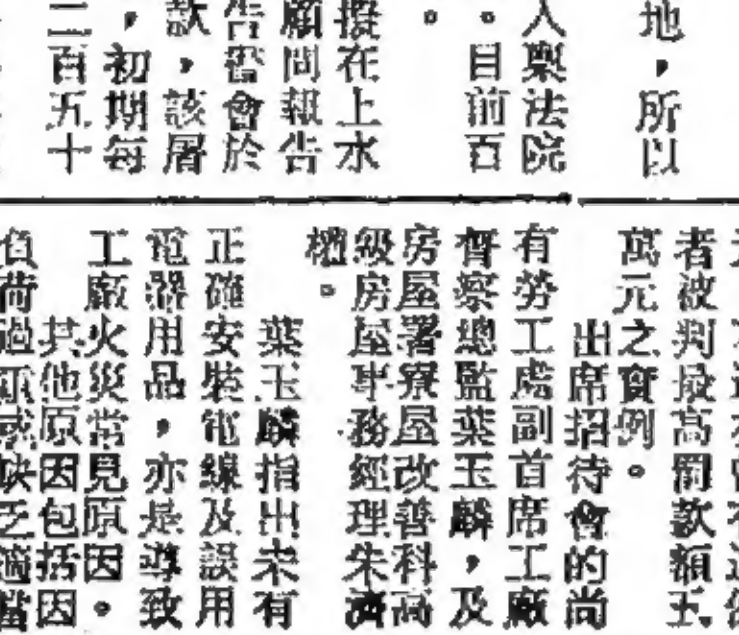 地，所以
入禀法院
。目前百
。
撥在上水
顧問報告
告番會於
款，該層
，初期每
二百五十
者被判最高罰款額五
萬元之實例。
出席招待會的尚
有勞工處副首席工廠
督察總監葉玉麟，及
房屋署寮屋改善科高
級房屋事務經理朱濟
榴。
葉玉麟指出未有
正確安裝電線及誤用
電器用品，亦是導致
工廠火災常見原因。
其他原因包括因
負荷過重或缺乏適當